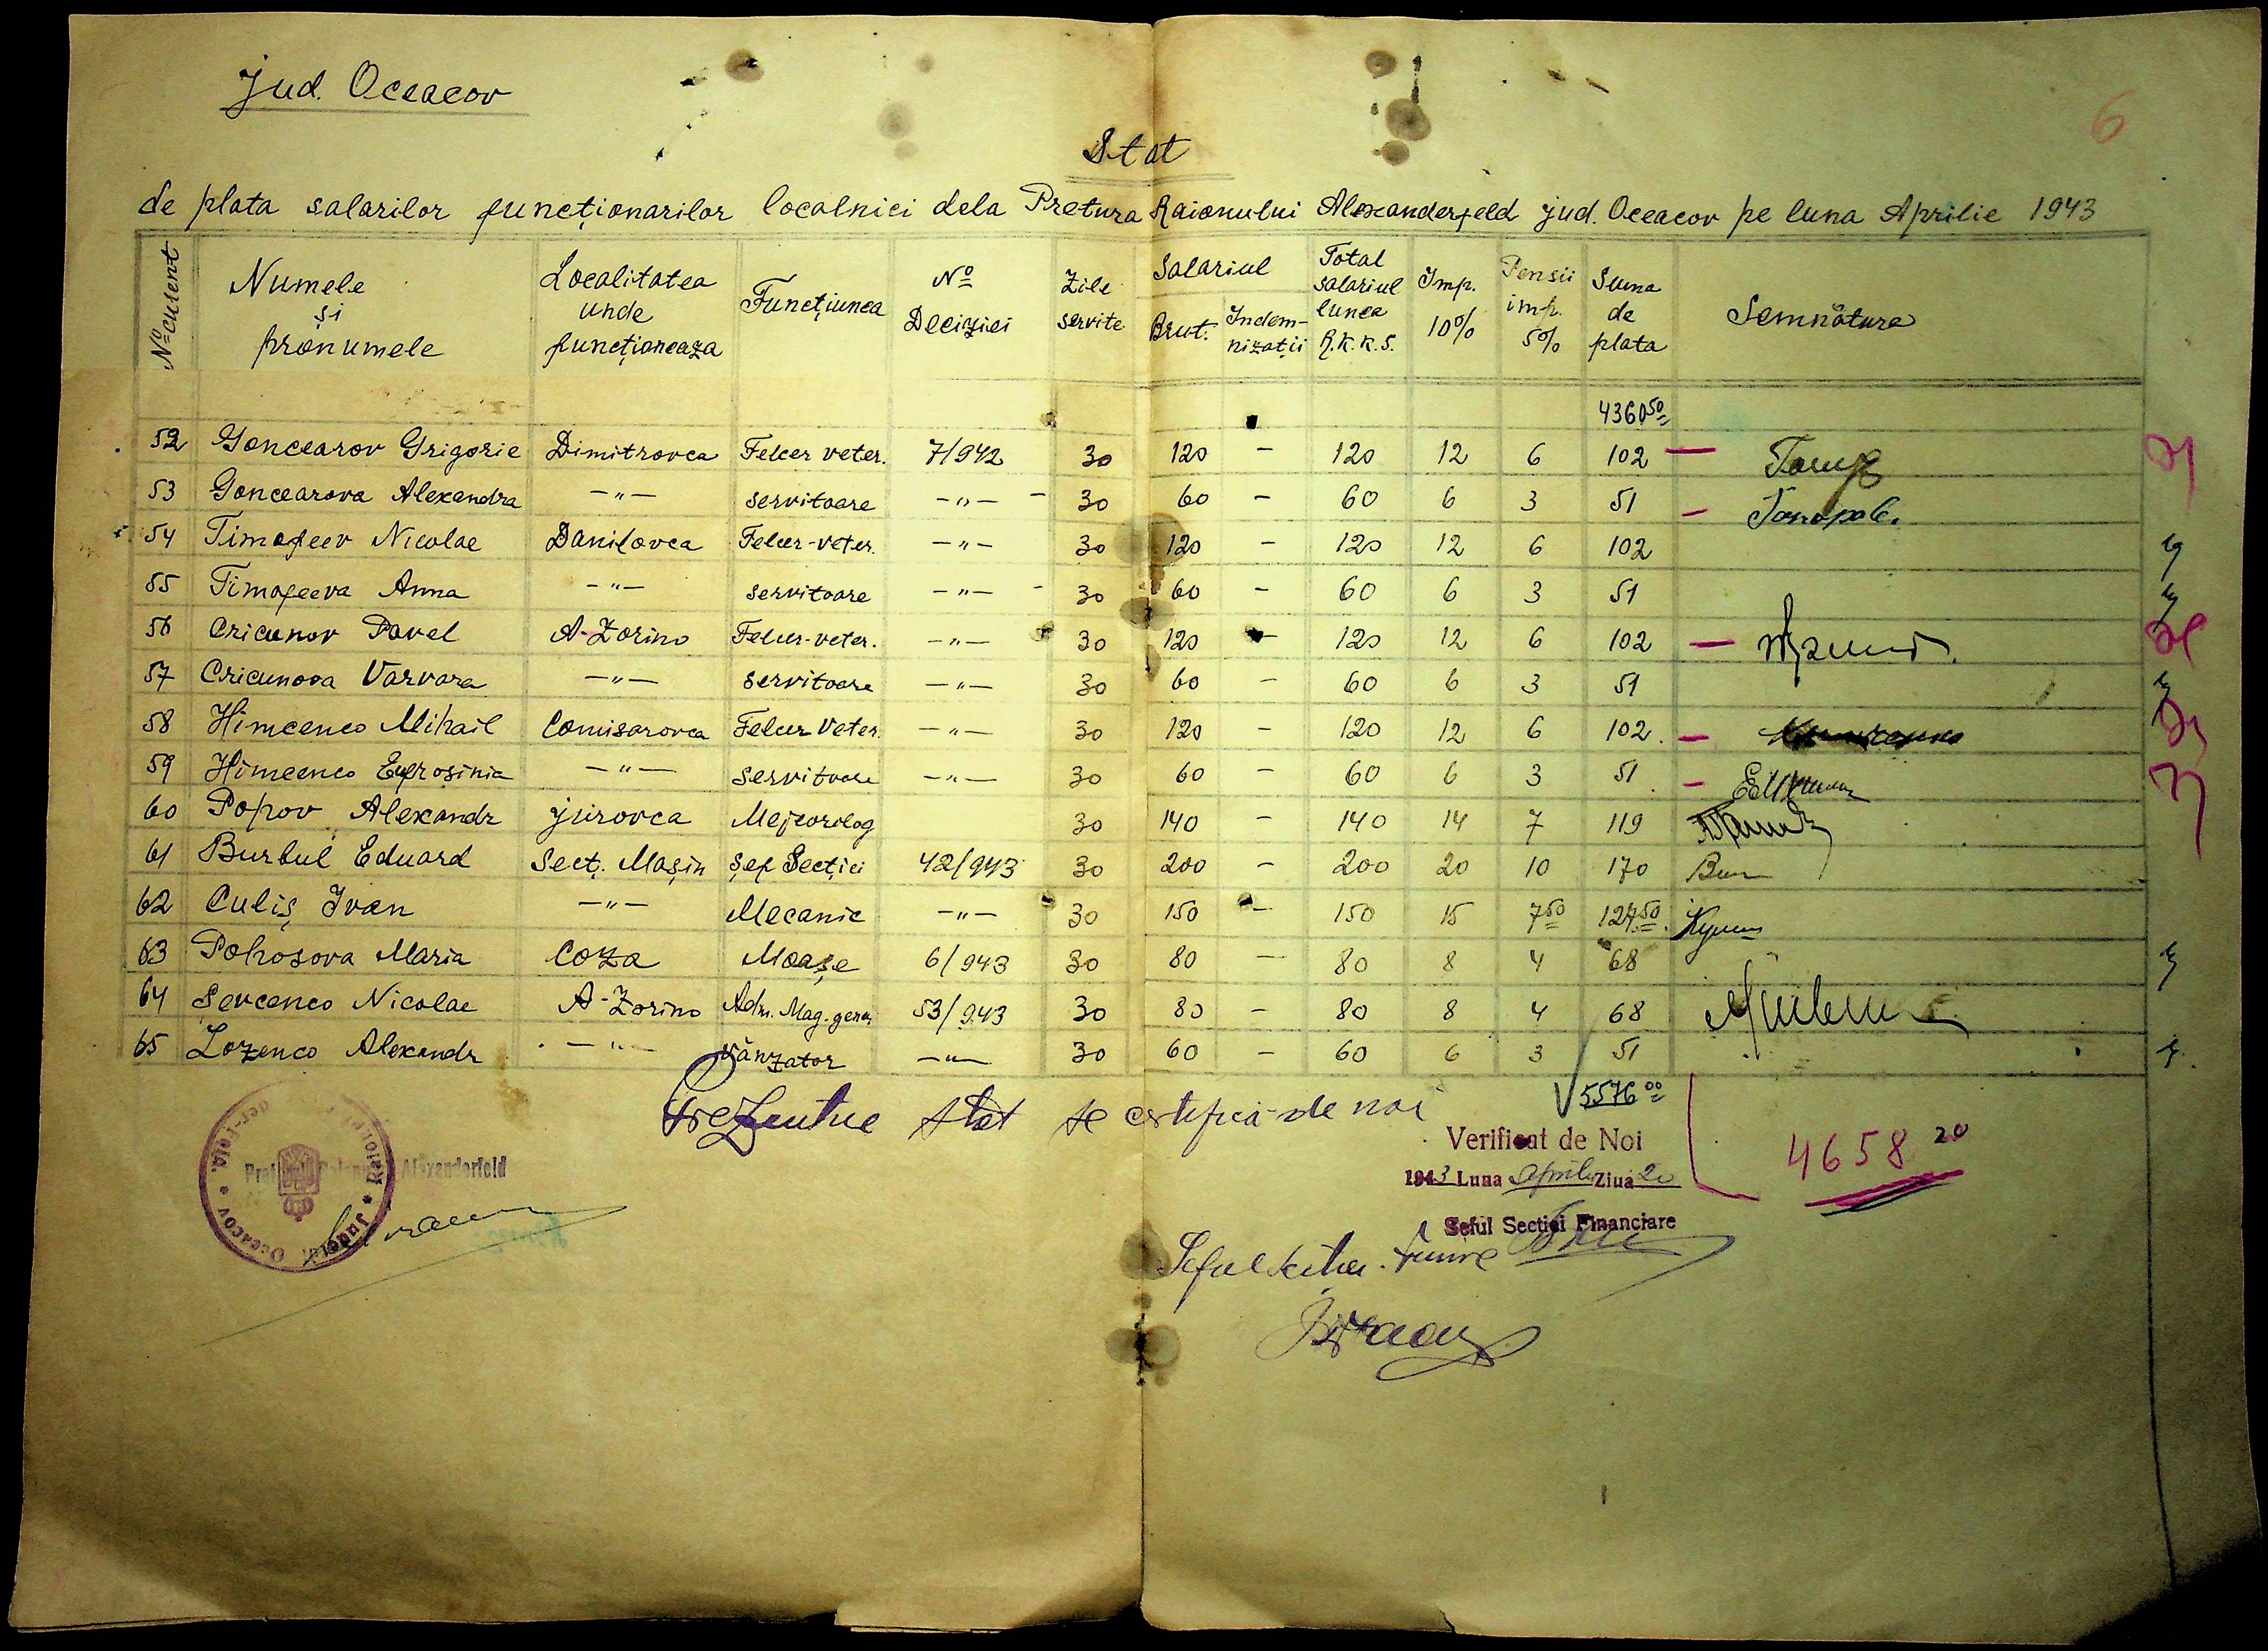 Jud. Oceacov
6
Stat
de plata salarilor funcționarilor localnici dela Pretura Raionului Alexanderfeld jud. Oceacov pe luna Aprilie 1943
No curent | Numele și pronumele | Localitatea unde funcționeaza | Funcțiunea | No Deciziei | Zile servite | Salariul Brut. | Indemnizații | Total salariul lunea R.K.K.S. | Imp. 10% | Pensii imp. 5% | Suma de plata | Semnătura
4360 50
52 Goncearov Grigorie Dimitrovca Felcer veter. 7/942 30 120 - 120 12 6 102 —
53 Goncearova Alexandra -"- servitoare -"- 30 60 - 60 6 3 51 —
54 Timofeev Nicolae Danilovca Felcer-veter. -"- 30 120 - 120 12 6 102
55 Timofeeva Anna -"- servitoare -"- 30 60 - 60 6 3 51
56 Cricunov Pavel A-Zorino Felcer-veter. -"- 30 120 - 120 12 6 102 —
57 Cricunova Varvara -"- servitoare -"- 30 60 - 60 6 3 51
58 Himcenco Mihail Comisarovca Felcer Veter. -"- 30 120 - 120 12 6 102 —
59 Himcenco Eufrosinia -"- servitoare -"- 30 60 - 60 6 3 51 —
60 Popov Alexandr Jurovca Mejeorilog 30 140 - 140 14 7 119
61 Burbul Eduard Secț. Mașin șef Secției 42/943 30 200 - 200 20 10 170
62 Culiș Ivan -"- Mecanic -"- 30 150 - 150 15 7 50 127 50
63 Pohosova Maria Coza Moașe 6/943 30 80 - 80 8 4 68
64 Șevcenco Nicolae A-Zorino Adm. Mag. gener 53/943 30 80 - 80 8 4 68
65 Lozenco Alexandr -"- vânzator -"- 30 60 - 60 6 3 51
5576 00
Prezentue stat se certifică de noi
Verificat de Noi
1943 Luna Aprilie Ziua 20
4658 20
Alexanderfeld
Județul Oceacov
Seful Secției Financiare